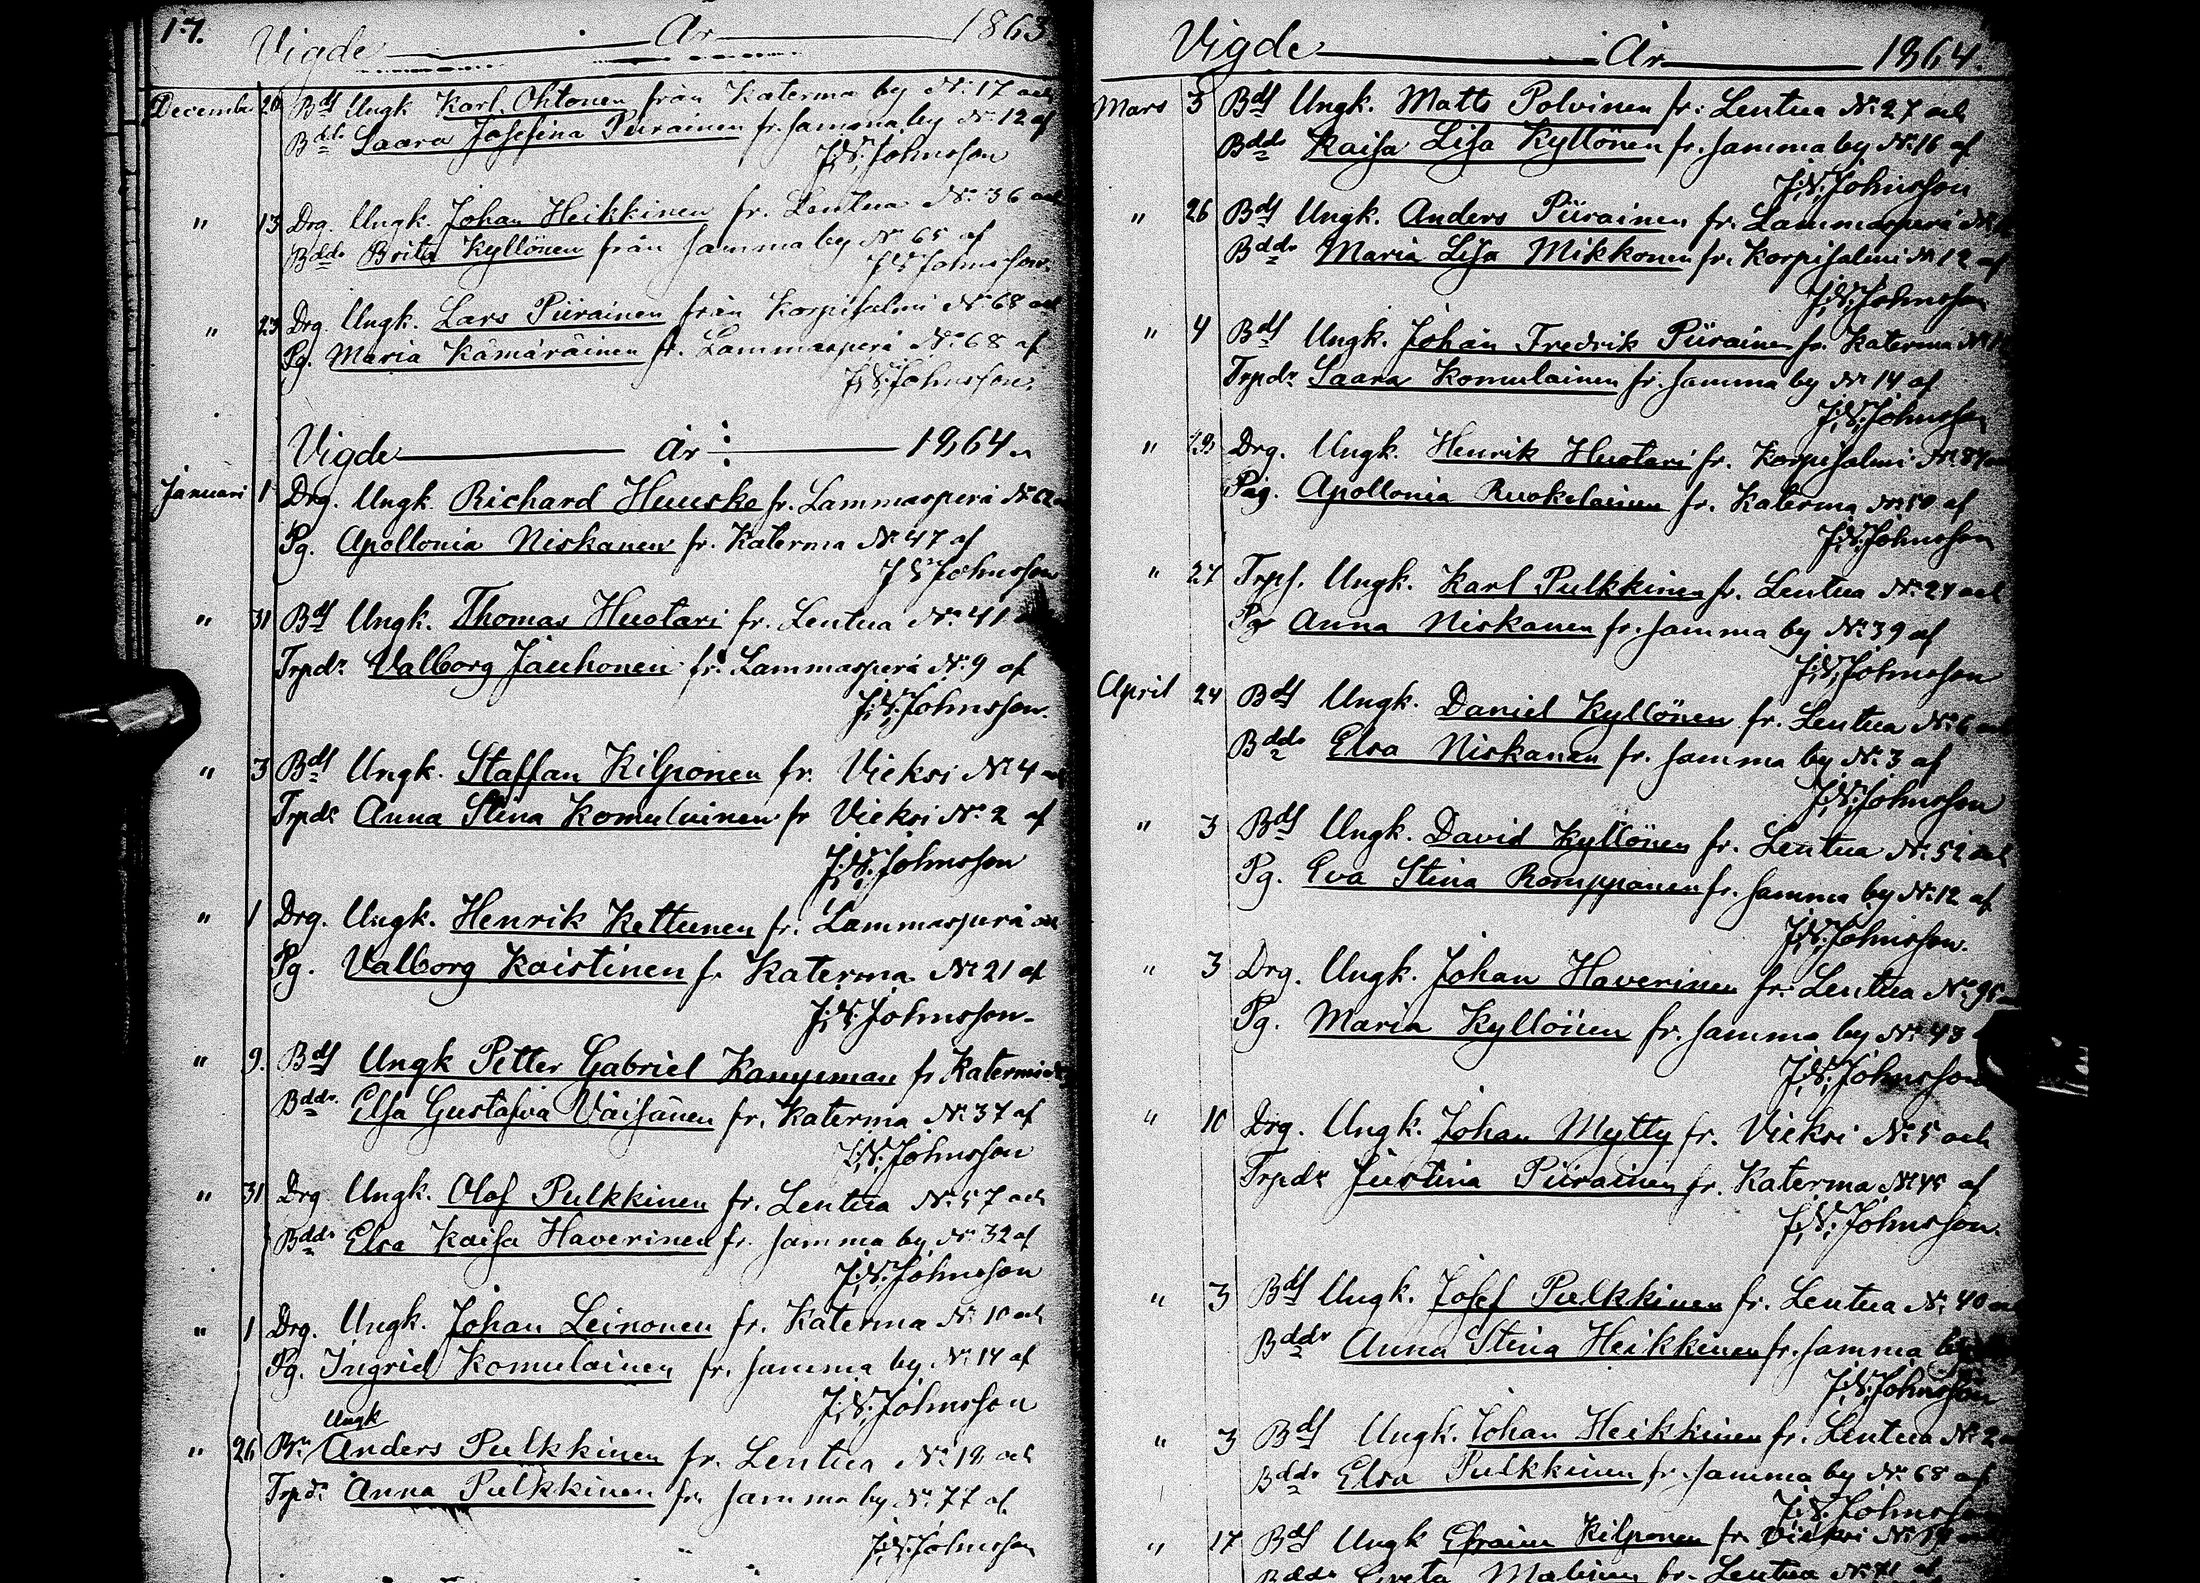 17.
Vigde År 1863
December 26 Bds Ungk Karl Ohtonen från Katerma by No 17 och
Bddr Saara Josefina Piirainen fr. samma by No 12 af
J.V. Johnsson
" 13 Drg. Ungk. Johan Heikkinen fr. Lentua No 36 och
Bddr Brita Kyllönen från samma by No 65 af
J V Johnsson
" 23 Drg Ungk. Lars Piirainen från Korpisalmi No 68 och
Pg. Maria Kämäräinen fr. Lammasperä No 68 af
J.V. Johnsson.
Vigde År: 1864.
Januari 1 Drg. Ungk. Richard Huuske fr. Lammasperä No
Pg. Apollonia Niskanen fr. Katerma No 47 af
J V Johnsson
" 31 Bds Ungk. Thomas Huotari fr. Lentua No 41
Trpdr Valborg Jauhonen fr. Lammasperä No 9 af
J.V. Johnsson.
" 3 Bds Ungk. Staffan Kilponen fr. Vieksi No 4
Trpdr Anna Stina Komulainen fr Vieksi No 2 af
J.V. Johnsson
" 1 Drg. Ungk. Henrik Kettunen fr. Lammasperä och
Pg. Valborg Kaistinen fr Katerma No 21 af
J.V. Johnsson
" 9. Bds Ungk Petter Gabriel fr Katerma
Bddr Elsa Gustafva Väisänen fr. Katerma No 37 af
J.V. Johnsson
" 31 Drg Ungk. Olof Pulkkinen fr. Lentua No 57 och
Bddr Elsa Kaisa Haverinen fr. samma by No 32 af
J.V. Johnsson
" 1 Drg. Ungk. Johan Leinonen fr. Katerma No 10 och
Pg. Ingrid Komulainen fr. samma by No 14 af
J.V. Johnsson
Ungk
" 26 Br Anders Pulkkinen fr. Lentua No 18 och
Trpdr Anna Pulkkinen fr. samma by No 77 af
J.V. Johnsson
Vigde År 1864.
Mars 3 Bds Ungk. Matts Polvinen fr. Lentua No 27 och
Bddr Kaisa Lisa Kyllönen fr. samma by No 16 af
J.V. Johnsson
" 26 Bds Ungk. Anders Piirainen fr. Lammasperä No
Bddr Maria Lisa Mikkonen fr. Korpisalmi No 12 af
J.V. Johnsson
" 4 Bds Ungk. Johan Fredrik Piirainen fr. Katerma No
Trpdr Saara Komulainen fr. samma by No 14 af
J.V. Johnsson
" Drg. Ungk. Henrik Huotari fr. Korpisalmi No
Pig. Apollonia Ruokolainen fr. Katerma No 50 af
J.V. Johnsson
" 27 Trps. Ungk. Karl Pulkkinen fr. Lentua No 27 och
Pg Anna Niskanen fr. samma by No 39 af
J.V. Johnsson
April 24 Bds Ungk. Daniel Kyllönen fr. Lentua No 6 och
Bddr Elsa Niskanen fr. samma by No 3 af
J.V. Johnsson
" 3 Bds Ungk. David Kyllönen fr. Lentua No 52 och
Pg. Eva Stina Romppanen fr. samma by No 12 af
J.V. Johnsson.
" 3 Drg. Ungk. Johan Haverinen fr. Lentua No 95
Pg. Maria Kyllönen fr. samma by No 43
J.V. Johnsson
" 10 Drg. Ungk. Johan Mytty fr. Vieksi No 5 och
Trpdr Justina Piirainen fr. Katerma No 45 af
J.V. Johnsson.
" 3 Bds Ungk. Josef Pulkkinen fr. Lentua No 40 och
Bddr Anna Stina Heikkinen fr. samma by
J.V. Johnsson
" 3 Bds Ungk. Johan Heikkinen fr. Lentua No 2
Bddr Elsa Pulkkinen fr. samma by No 68 af
J.V. Johnsson
" 17 Bds Ungk Efraim Kilponen fr. Vieksi No
Bddr Greta Malinen fr. Lentua No 71 af